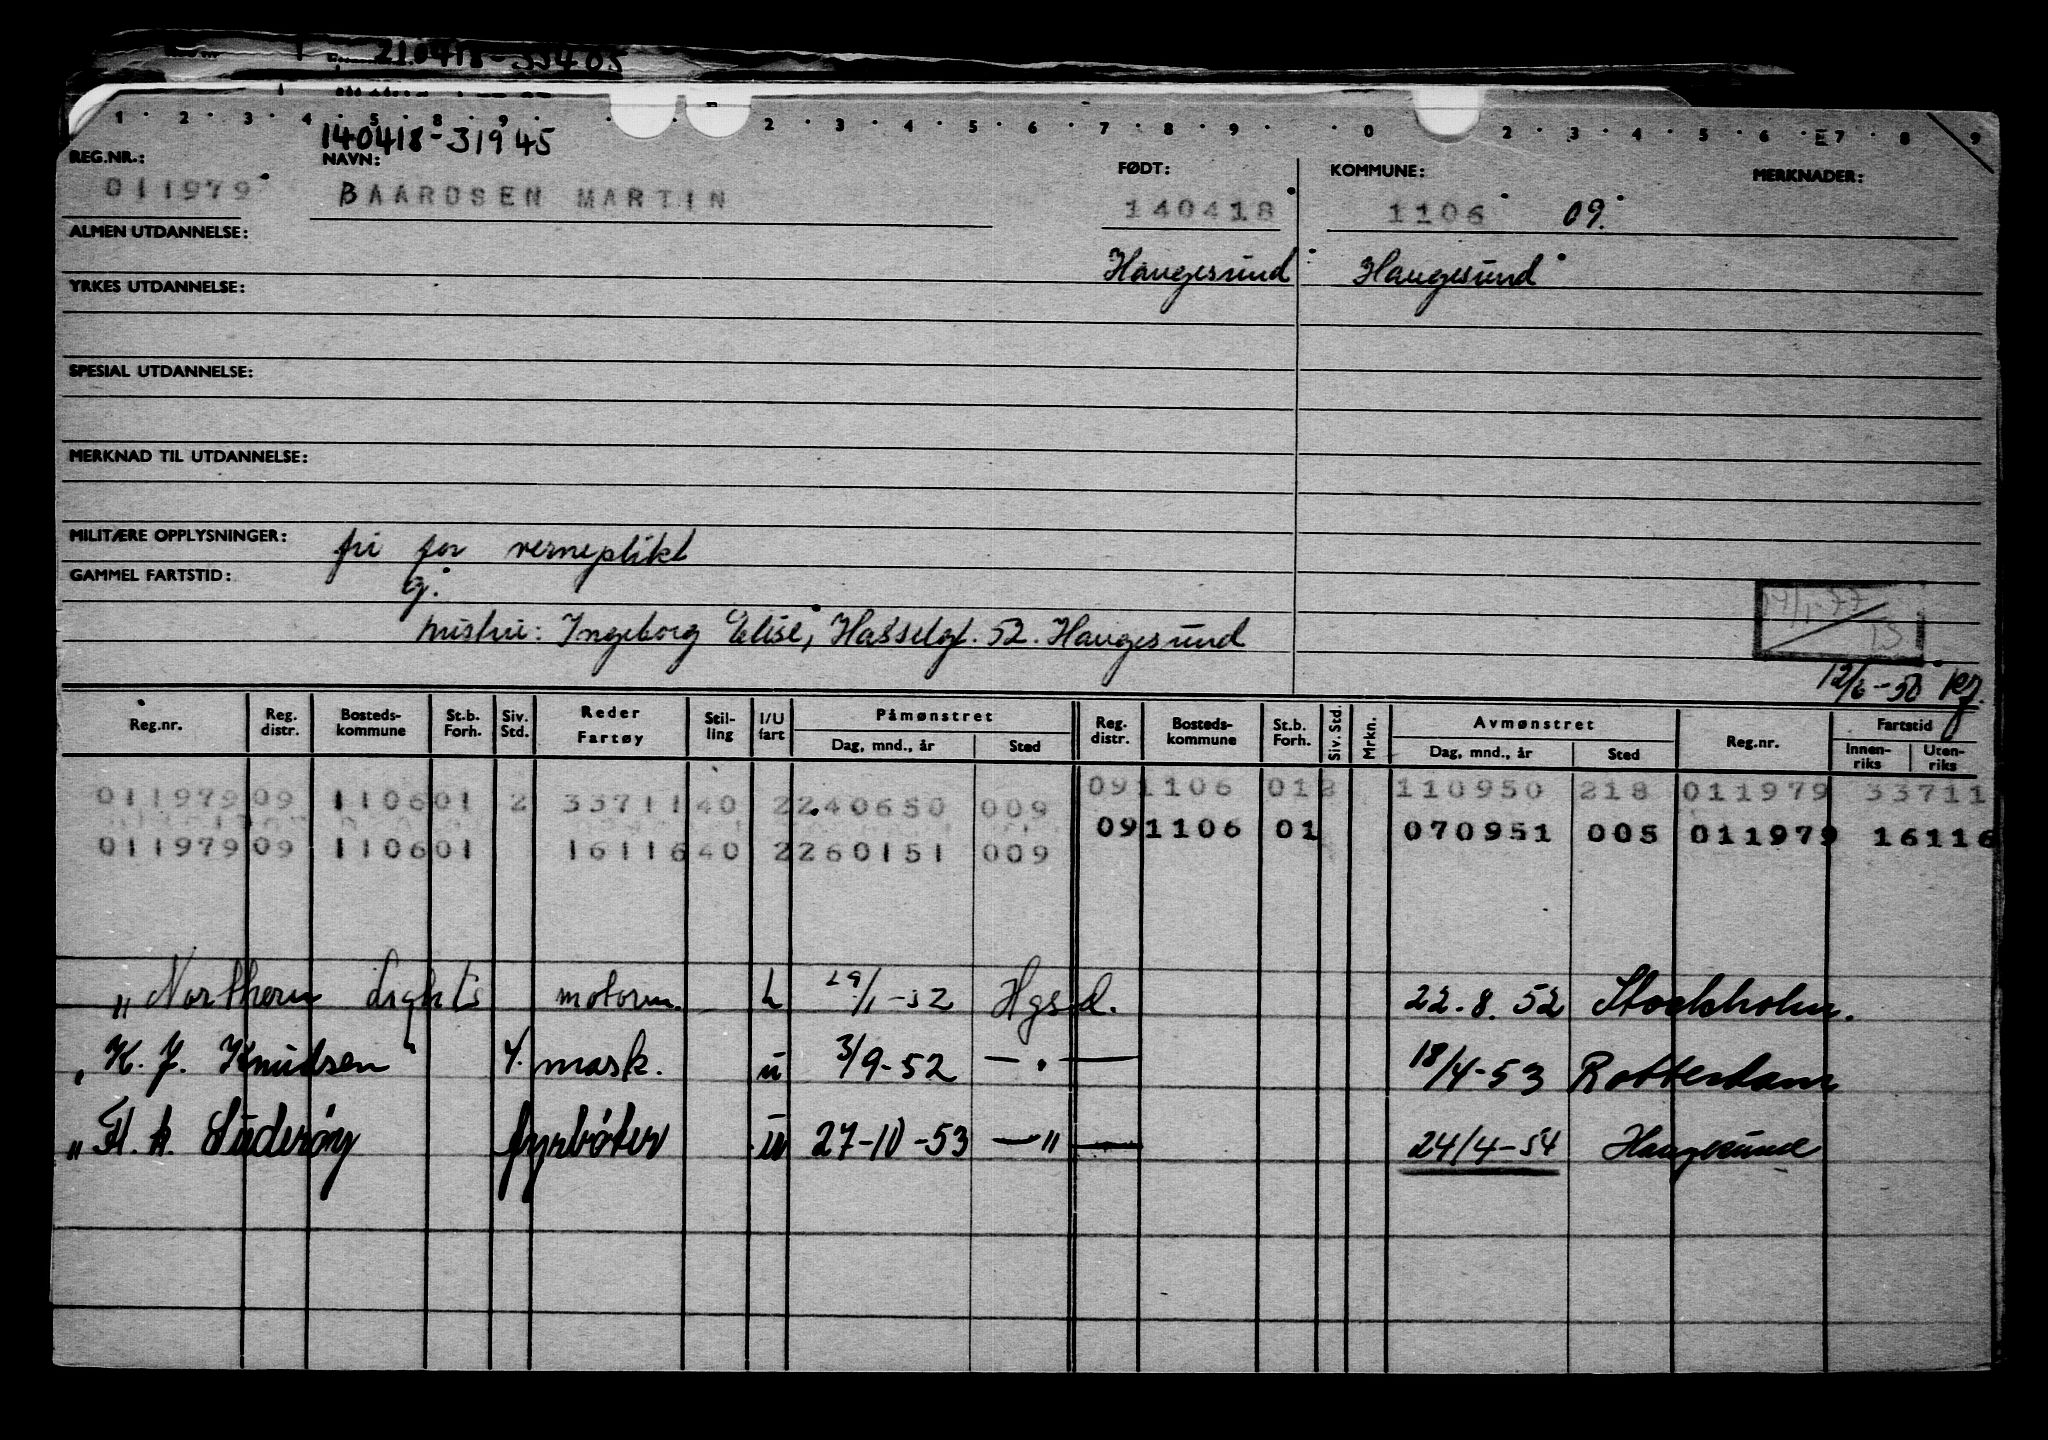 210418-33405
1 2 3 4 5 8 9 2 3 4 5 6 7 8 9 0 2 3 4 5 6 7 8 9
140418-31945
REG.NR.: NAVN: FØDT: KOMMUNE: MERKNADER:
011979 BAARDSEN MARTIN 140418 1106 09.
ALMEN UTDANNELSE:
Haugesund Haugesund
YRKES UTDANNELSE:
SPESIAL UTDANNELSE:
MERKNAD TIL UTDANNELSE:
MILITÆRE OPPLYSNINGER: fri for verneplikt
GAMMEL FARTSTID: g.
hustru: Ingeborg Elise, Hasselgt. 52. Haugesund
12/6-50
Reg.nr. Reg. distr. Bostedskommune St.b. Forh. Siv. Std. Reder Fartøy Stilling I/U fart Påmønstret Dag, mnd., år Sted Reg. distr. Bostedskommune St.b. Forh. Siv. Std. Mrkn. Avmønstret Dag, mnd., år Sted Reg.nr. Fartstid Innenriks Utenriks
011979 09 1106 01 2 33711 40 2 240650 009 09 1106 01 2 110950 218 011979 33711
011979 09 1106 01 16116 40 2 260151 009 09 1106 01 070951 005 011979 16116
„Northern Lights motorm. u 29/1-52 Hgsd. 22.8.52 Stockholm.
„K. J. Knudsen" 4. mask. u 3/9-52 —"— 18/4-53 Rotterdam
„Fl. k. Suderøy fyrbøter u 27-10-53 —"— 24/4-54 Haugesund